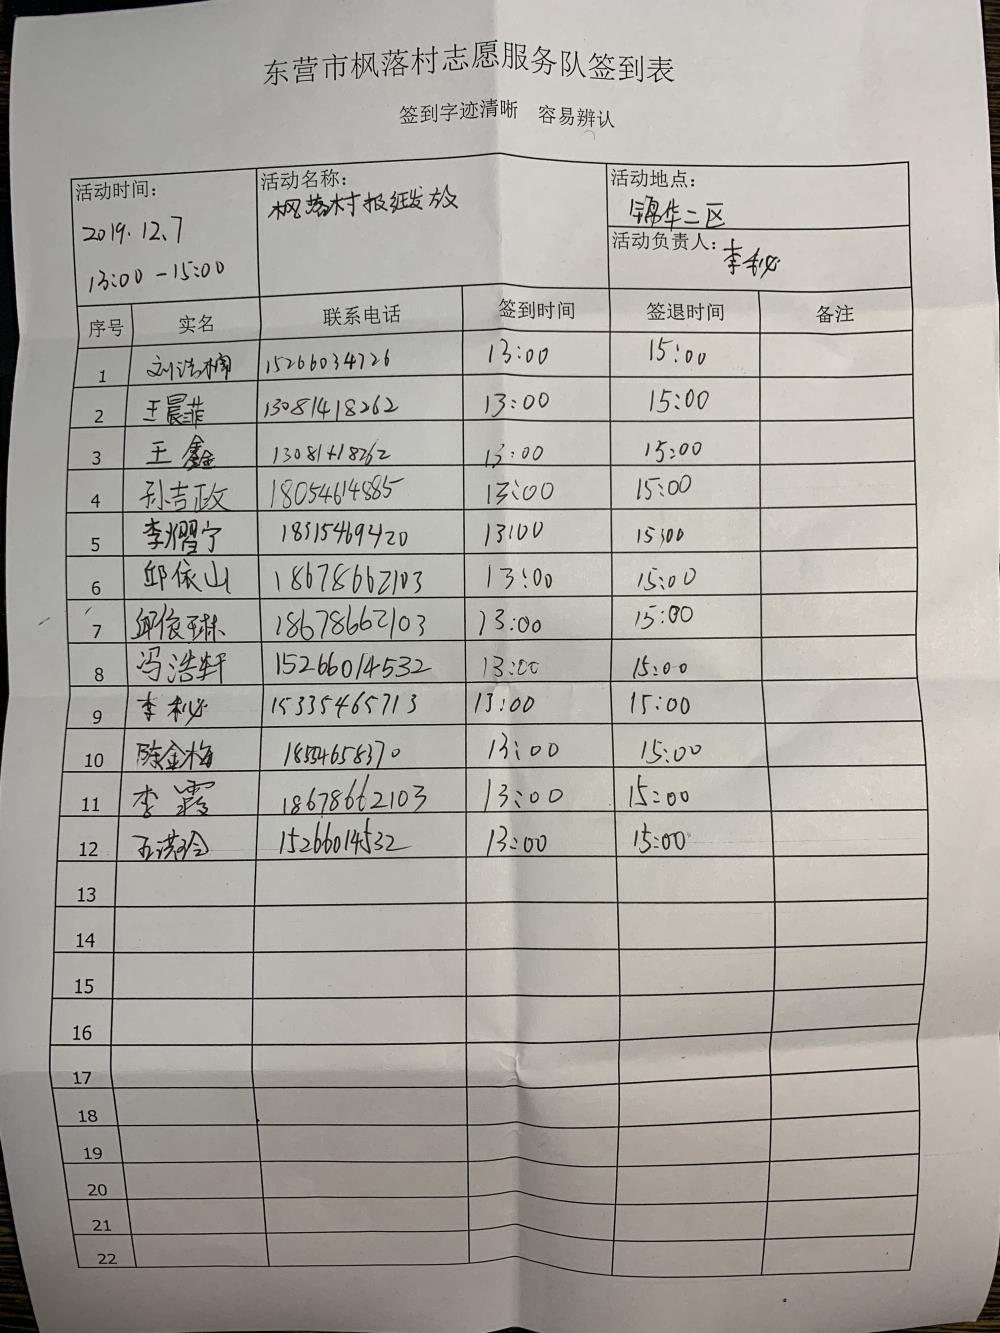 东营市枫落村志愿服务队签到表
签到字迹清晰 容易辨认
活动时间：
2019.12.7
13:00-15:00
活动名称：
枫落村报纸发放
活动地点：
锦华二区
活动负责人：李秘
序号 实名 联系电话 签到时间 签退时间 备注
1 刘浩楠 15266034726 13:00 15:00
2 王晨菲 13081418262 13:00 15:00
3 王鑫 13081418262 13:00 15:00
4 孙吉政 18054614885 13:00 15:00
5 李熠宁 18515469420 13:00 15:00
6 邱依山 18678662103 13:00 15:00
7 邱依琳 18678662103 13:00 15:00
8 冯浩轩 15266014532 13:00 15:00
9 李秘 15335465713 13:00 15:00
10 陈金梅 18554658370 13:00 15:00
11 李霞 18678662103 13:00 15:00
12 15266014532 13:00 15:00
13
14
15
16
17
18
19
20
21
22